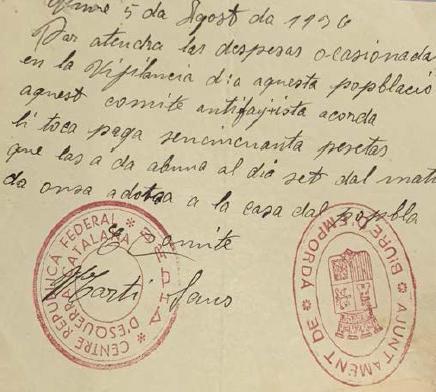 Biure 5 da Agost da 1936
Par atendra las despesas ocasionada
en la Vigilancia dia aquesta popblació
aquest comite antifaijista acorda
li toca paga sencincuanta pesetas
que las a da abuna al dia set dal mati
da onsa adotsa a la casa dal popbla
El Comite
Marti Saus
CENTRE REPUBLICA FEDERAL * D'ESQUERRA CATALANA *
AJUNTAMENT DE BIURE D'EMPORDÁ